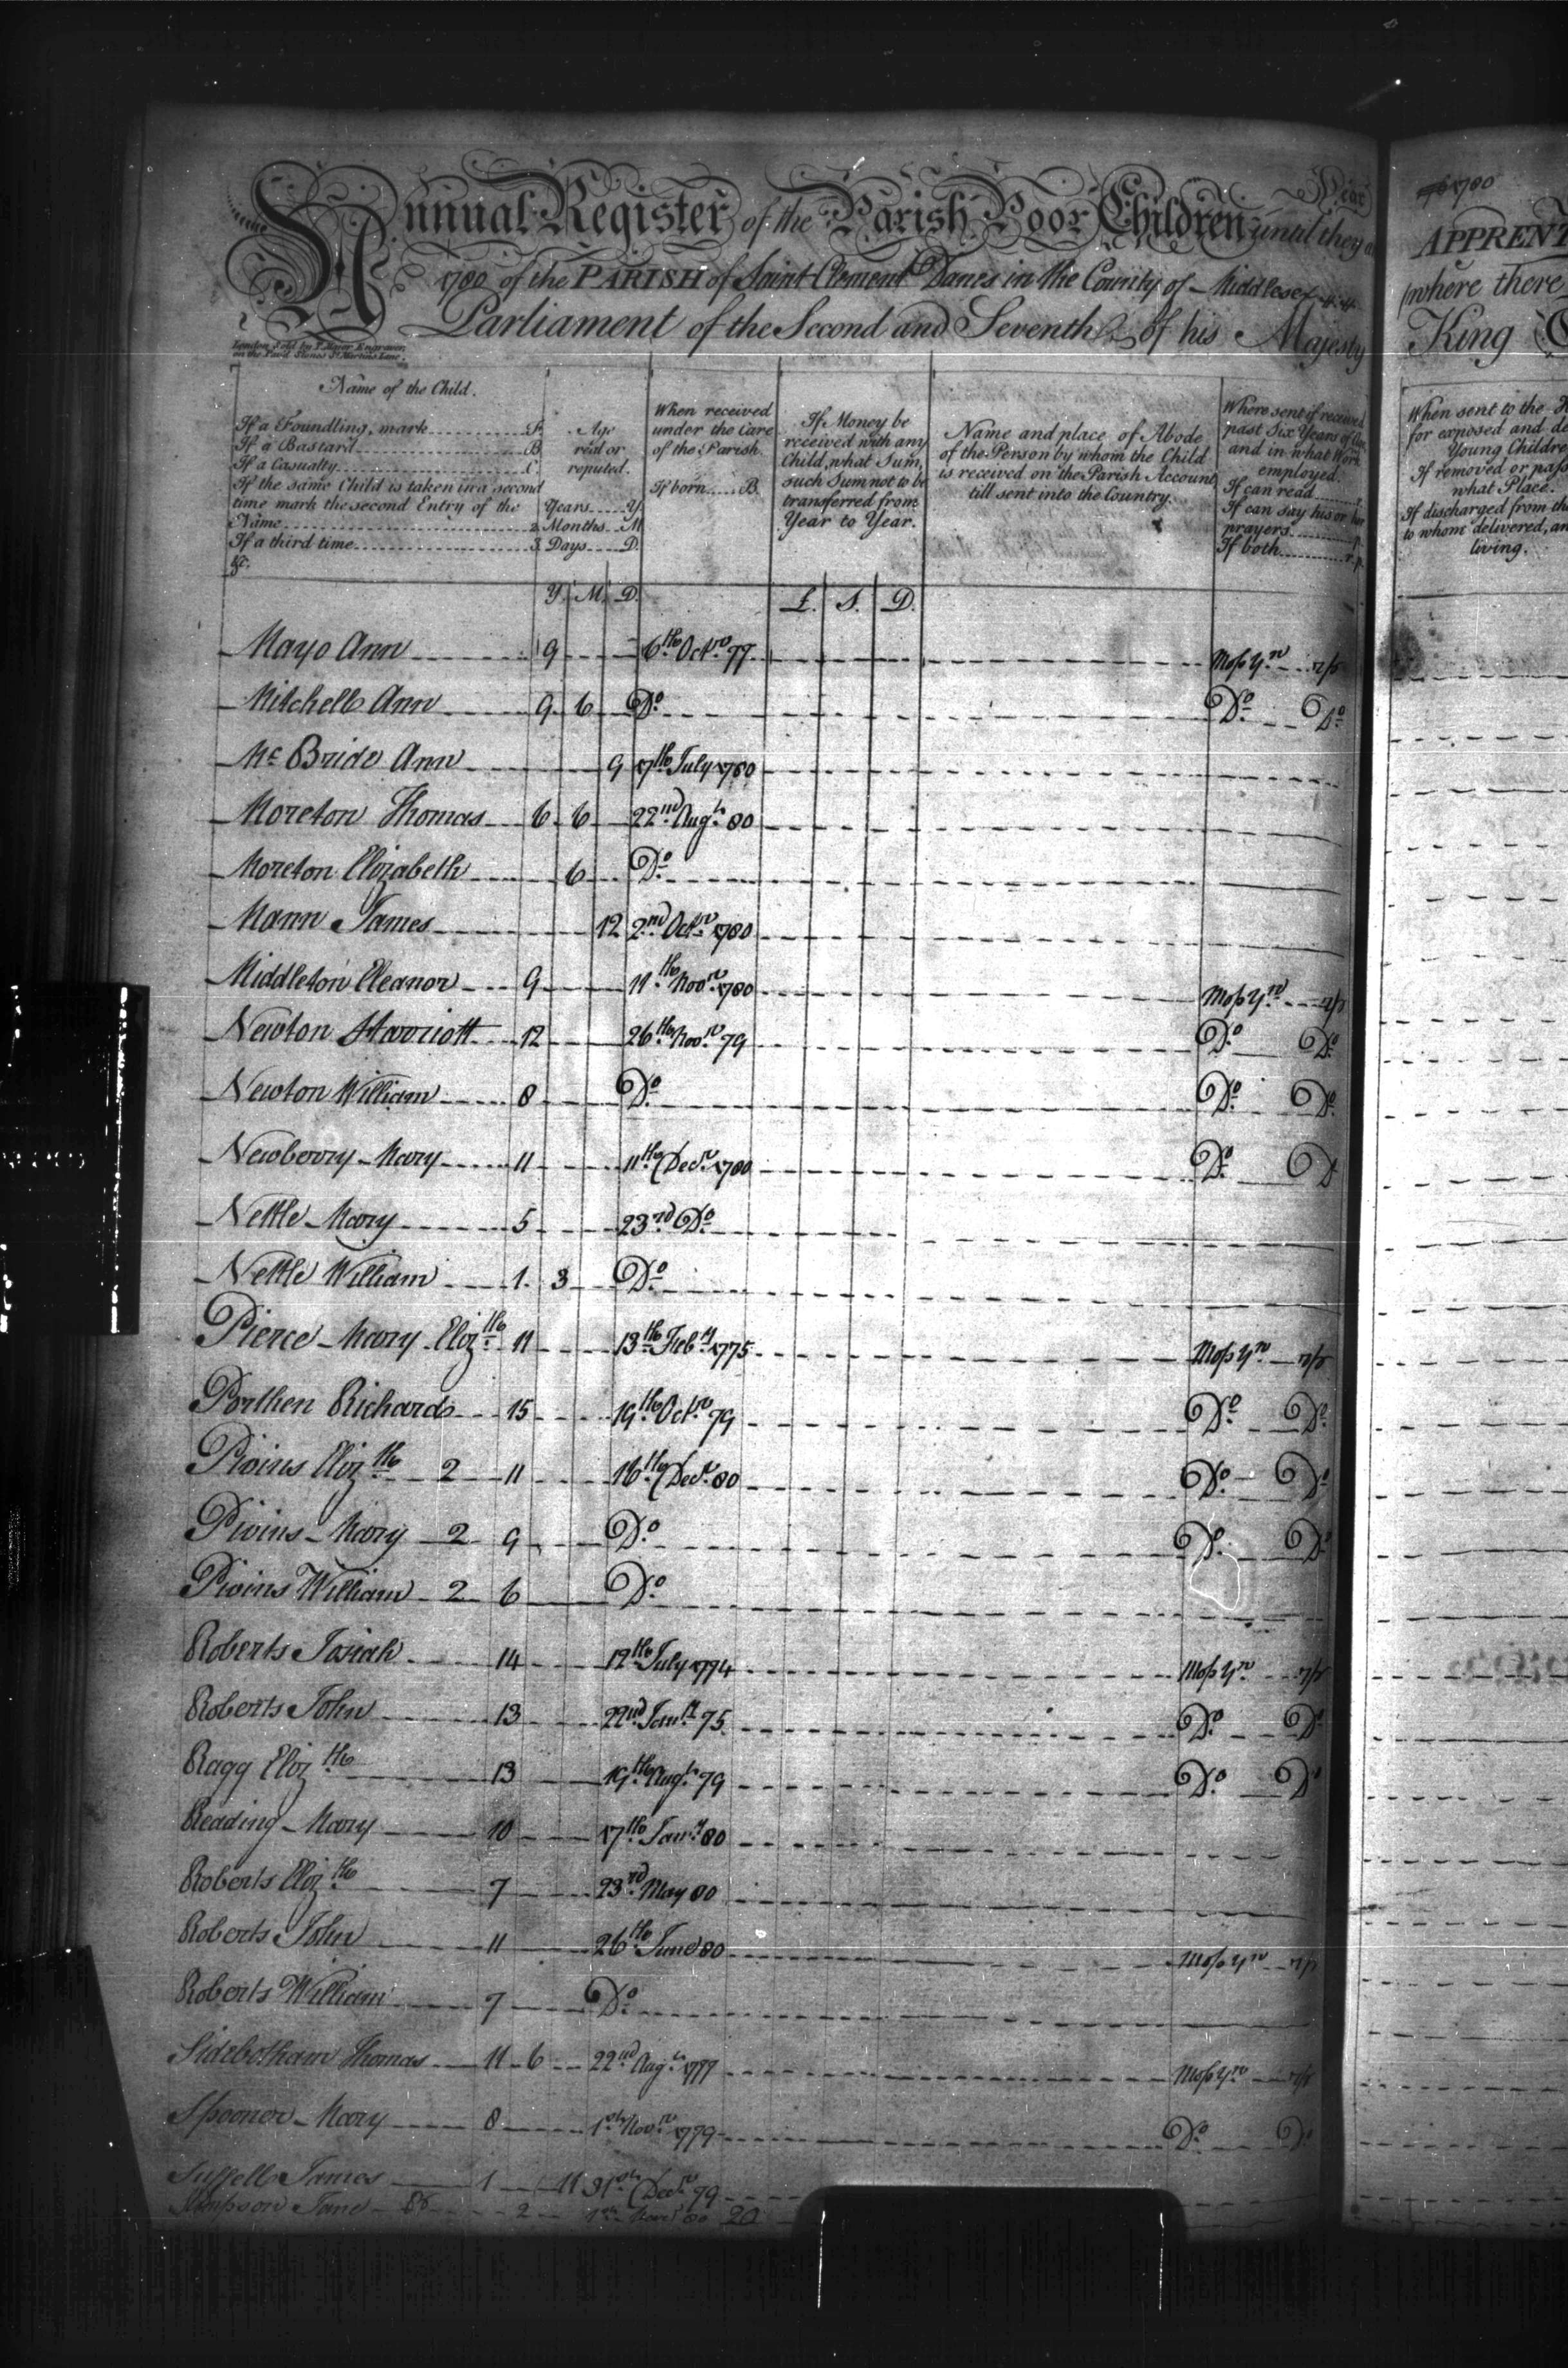 Annual Register of the Parish Poor Children until they a
Year
1780 of the PARISH of Saint Clement Danes in the County of Middlesex
Parliament of the Second and Seventh of his Majesty
London Sold by
Name of the Child.
If a Foundling, mark F.
If a Bastard B
If a Casualty C
If the same Child is taken in a second
time mark the second Entry of the
Name 2
If a third time 3
&c.
Age
real or
reputed.
Years Y
Months M
Days D.
When received
under the Care
of the Parish.
If born B.
If Money be
received with any
Child, what Sum,
such Sum not to be
transferred from
Year to Year.
Name and place of Abode
of the Person by whom the Child
is received on the Parish Account
till sent into the Country.
Where sent if received
past Six Years of Age
and in what Work
employed.
If can read r.
If can say his or her
prayers p.
If both r.p.
Y. M. D. £. S. D.
Mayo Ann 9 6th Octr 77 Mop Yn r/p
Mitchell Ann 9 6 Do Do Do
Mc Bride Ann 9 17th July 1780
Moreton Thomas 6 6 22nd Augt 80
Moreton Elizabeth 6 Do
Mann James 12 2nd Octr 1780
Middleton Eleanor 9 11th Novr 1780 Mop Yn r/p
Newton Harriott 12 26th Novr 79 Do Do
Newton William 8 Do Do Do
Newberry Mary 11 11th Decr 1780 Do Do
Nettle Mary 5 23rd Do
Nettle William 1 3 Do
Pierce Mary Elizth 11 13th Feby 1775 Mop Yn r/p
Porthen Richard 15 19th Octr 79 Do Do
Pivins Elizth 2 11 16th Decr 80 Do Do
Pivins Mary 2 9 Do Do Do
Pivins William 2 6 Do
Roberts Josiah 14 12th July 1774 Mop Yn r/p
Roberts John 13 22nd Jany 75 Do Do
Ragg Elizth 13 19th Augt 79 Do Do
Reading Mary 10 17th Jany 80
Roberts Elizth 7 23rd May 80
Roberts John 11 26th June 80 Mop Yn r/p
Roberts William 7 Do
Sidebotham Thomas 11 6 22nd Augt 1777 Mop Yn r/p
Spooner Mary 8 1st Novr 1779 Do Do
Suffell James 1 11 31st Decr 79
Simpson Jane 2 80 20
1780
APPRENT
where there
King
When sent to the
for exposed and de
Young Childre
If removed or pass
what Place.
If discharged from the
to whom delivered, an
living.